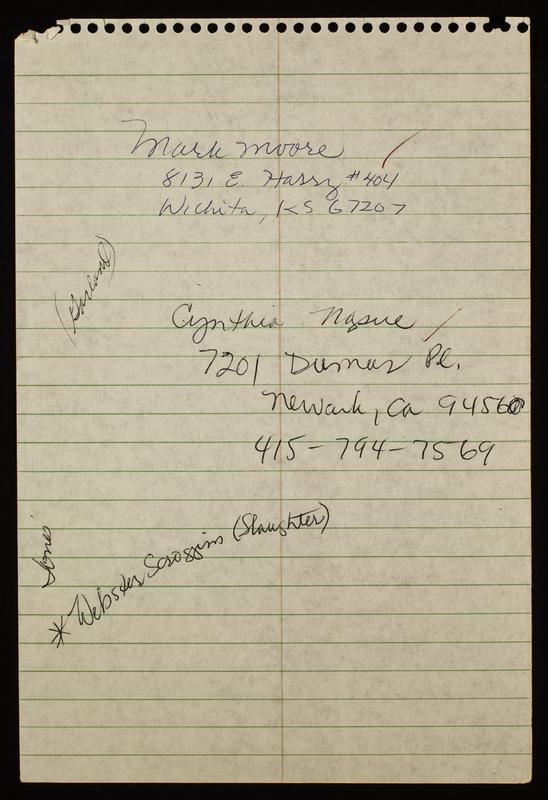 Mark Moore
8131 E. Harry #404
Wichita, KS 67207
(Garland)
Cynthia
7201 Dumas Pl.
Newark, Ca 94560
415-794-7569
Jones
* Webster Scroggins (Slaughter)